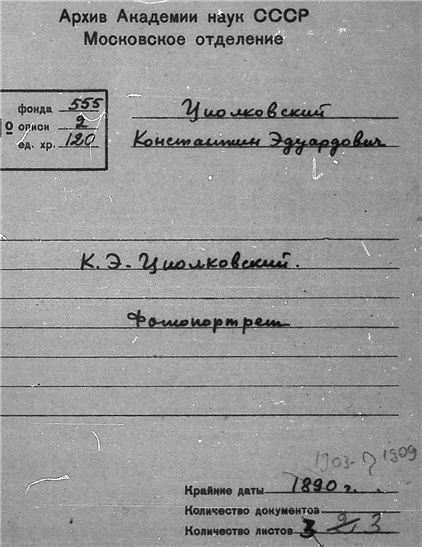 Архив Академии наук СССР
Московское отделение
фонда 555
описи 2
ед. хр. 120
Циолковский
Константин Эдуардович
К. Э. Циолковский.
Фотопортрет
1903-1909
Крайние даты 1890 г.
Количество документов
Количество листов 3